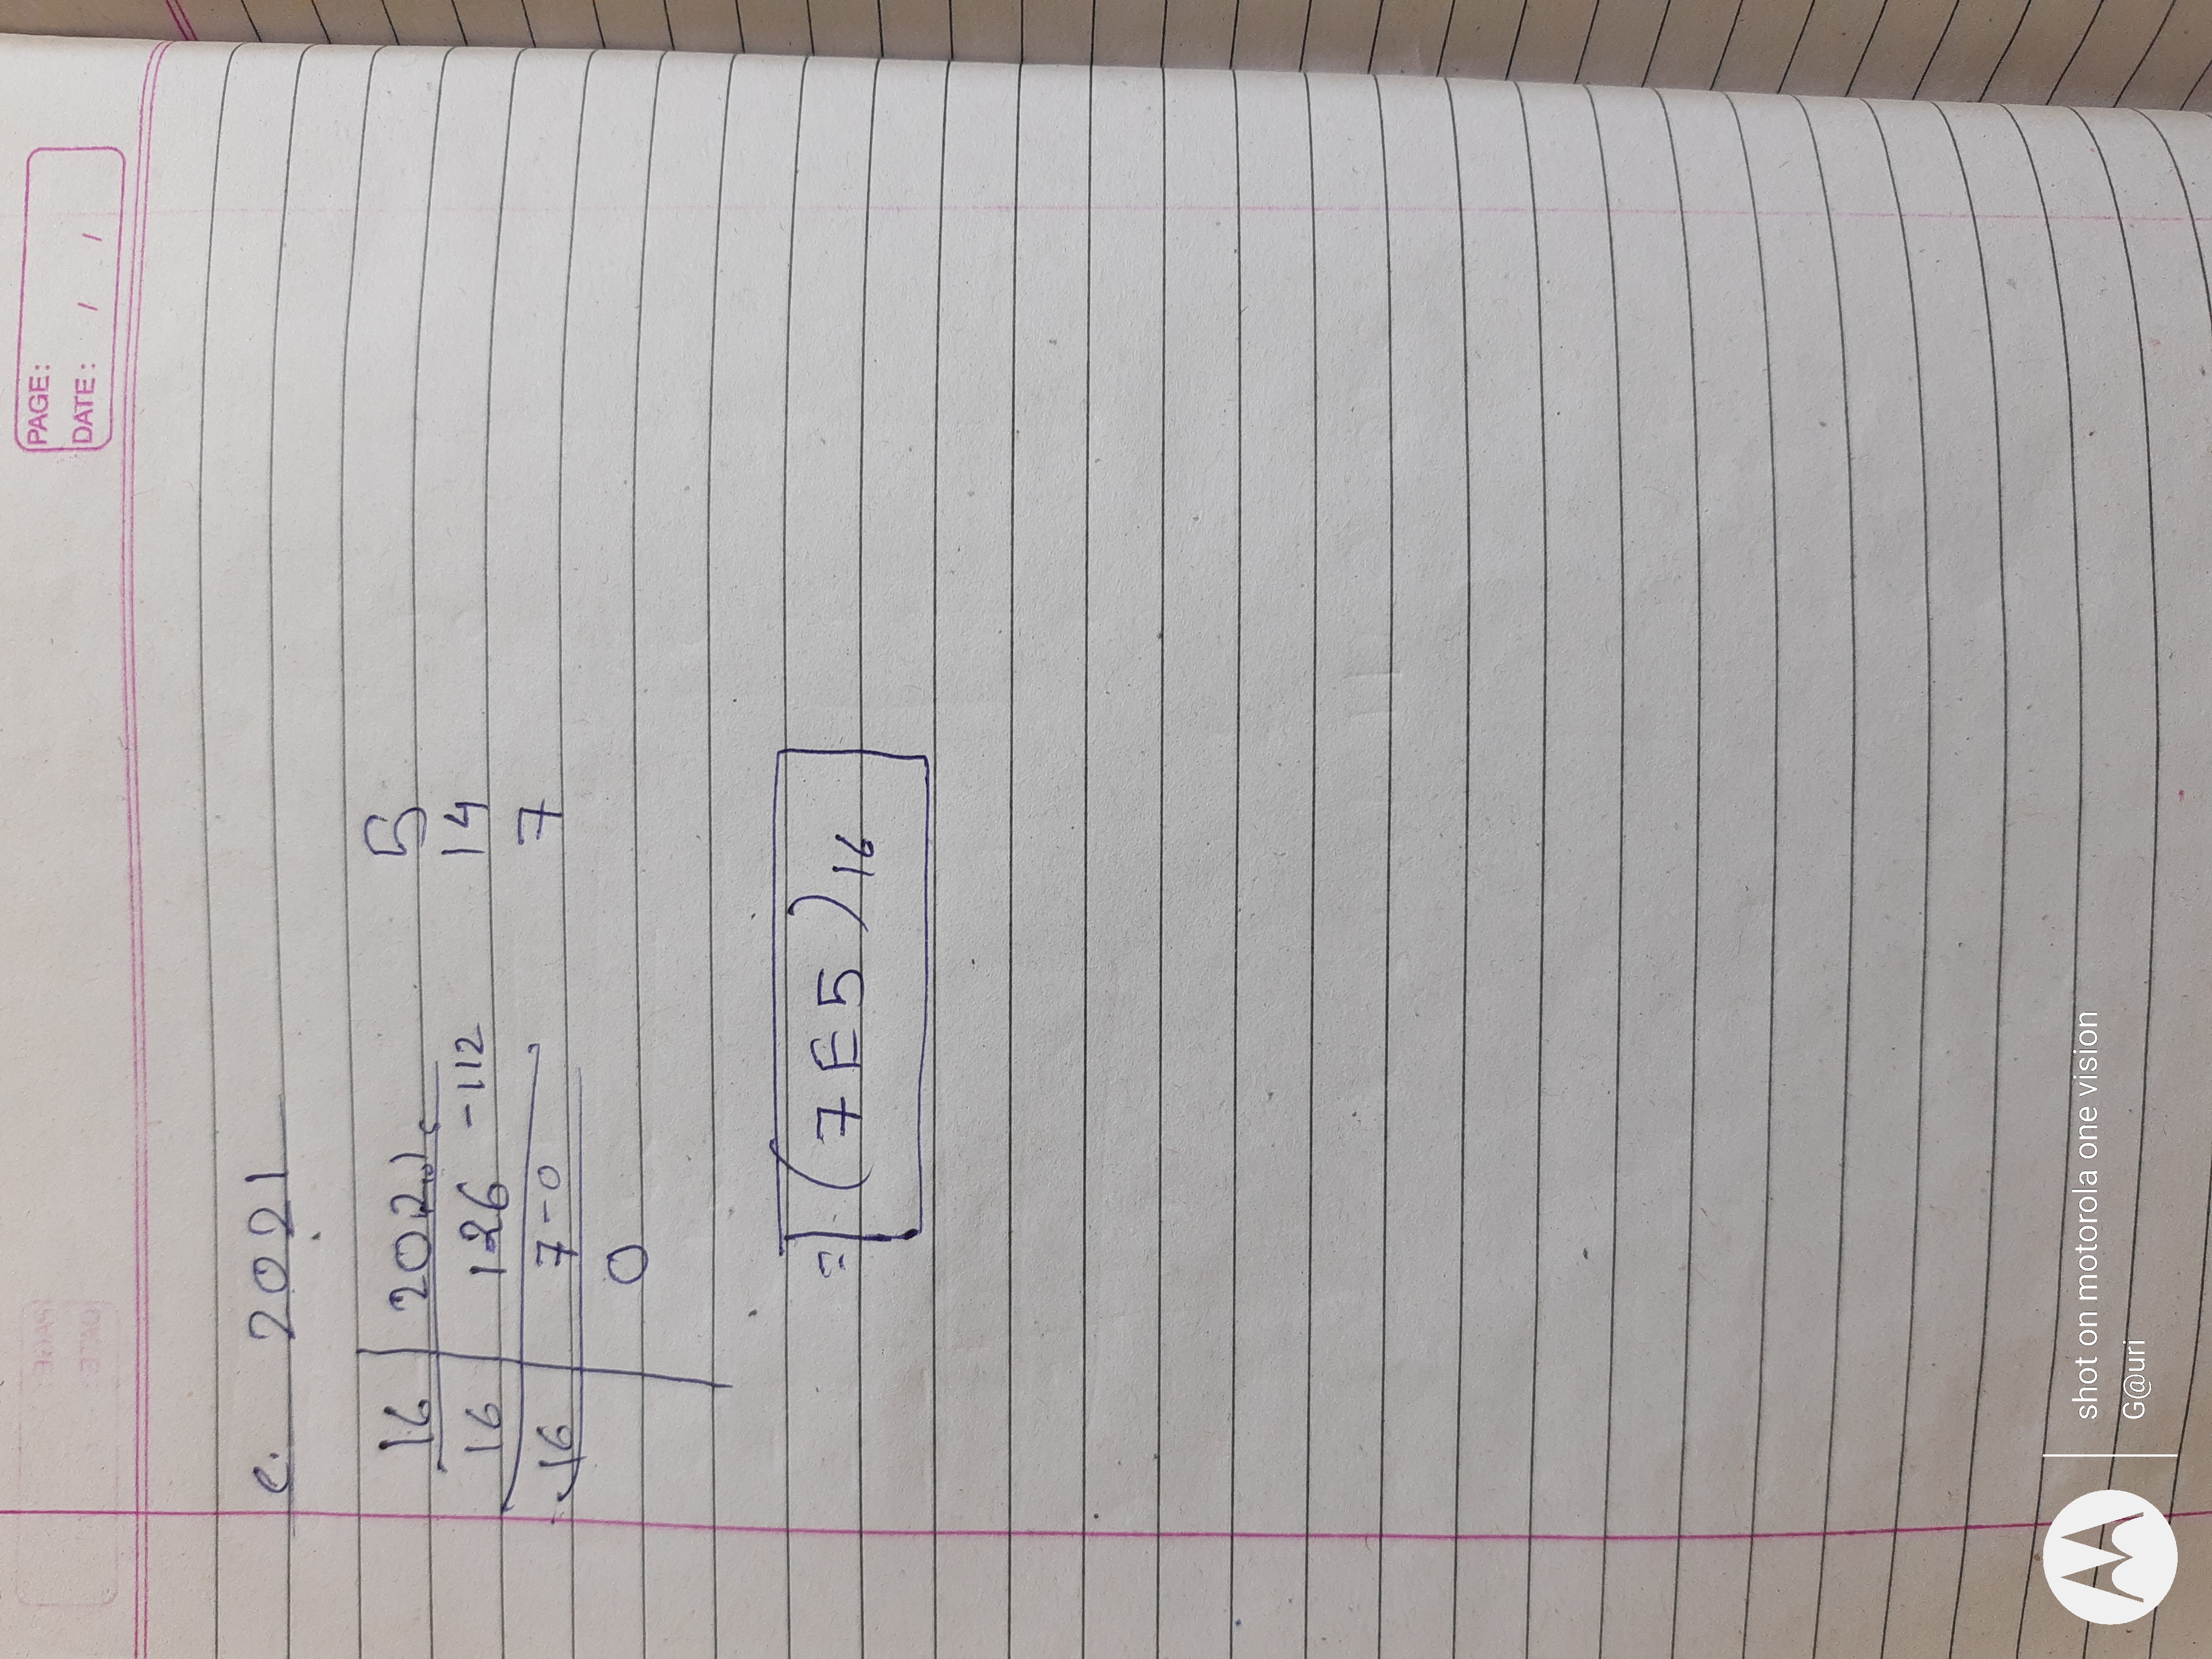 PAGE:
DATE: / /
e. 2021
16 2021 5
16 126 -112 14
16 7-0 7
0
= (7E5)16
shot on motorola one vision
G@uri